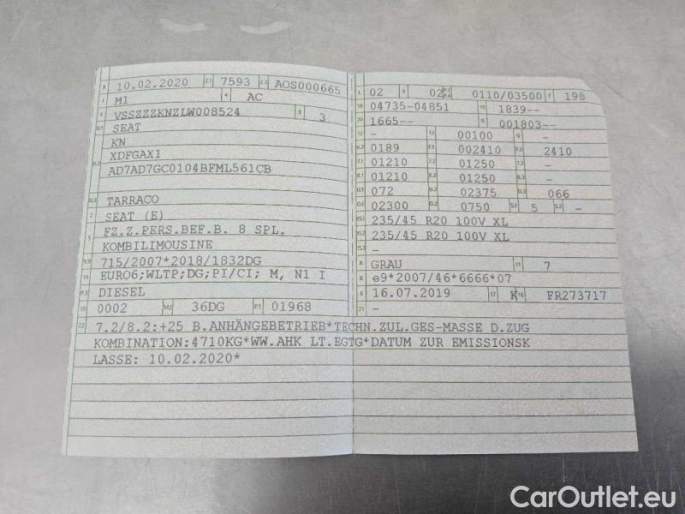 10.02.2020 7593 AOS000665
M1 AC
VSSZZZKNZLW008524 3
SEAT
KN
XDFGAX1
AD7AD7GC0104BFML561CB
TARRACO
SEAT (E)
FZ.Z.PERS.BEF.B. 8 SPL.
KOMBILIMOUSINE
715/2007*2018/1832DG
EURO6;WLTP;DG;PI/CI; M, N1 I
DIESEL
0002 36DG 01968
02 0110/03500 198
04735-04851 1839--
1665-- 001803--
- 00100 -
0189 002410 2410
01210 01250 -
01210 01250 -
072 02375 066
02300 0750 5 -
235/45 R20 100V XL
235/45 R20 100V XL
-
GRAU 7
e9*2007/46*6666*07
16.07.2019 K FR273717
-
7.2/8.2:+25 B.ANHÄNGEBETRIEB*TECHN.ZUL.GES-MASSE D.ZUG
KOMBINATION:4710KG*WW.AHK LT.EGTG*DATUM ZUR EMISSIONSK
LASSE: 10.02.2020*
CarOutlet.eu